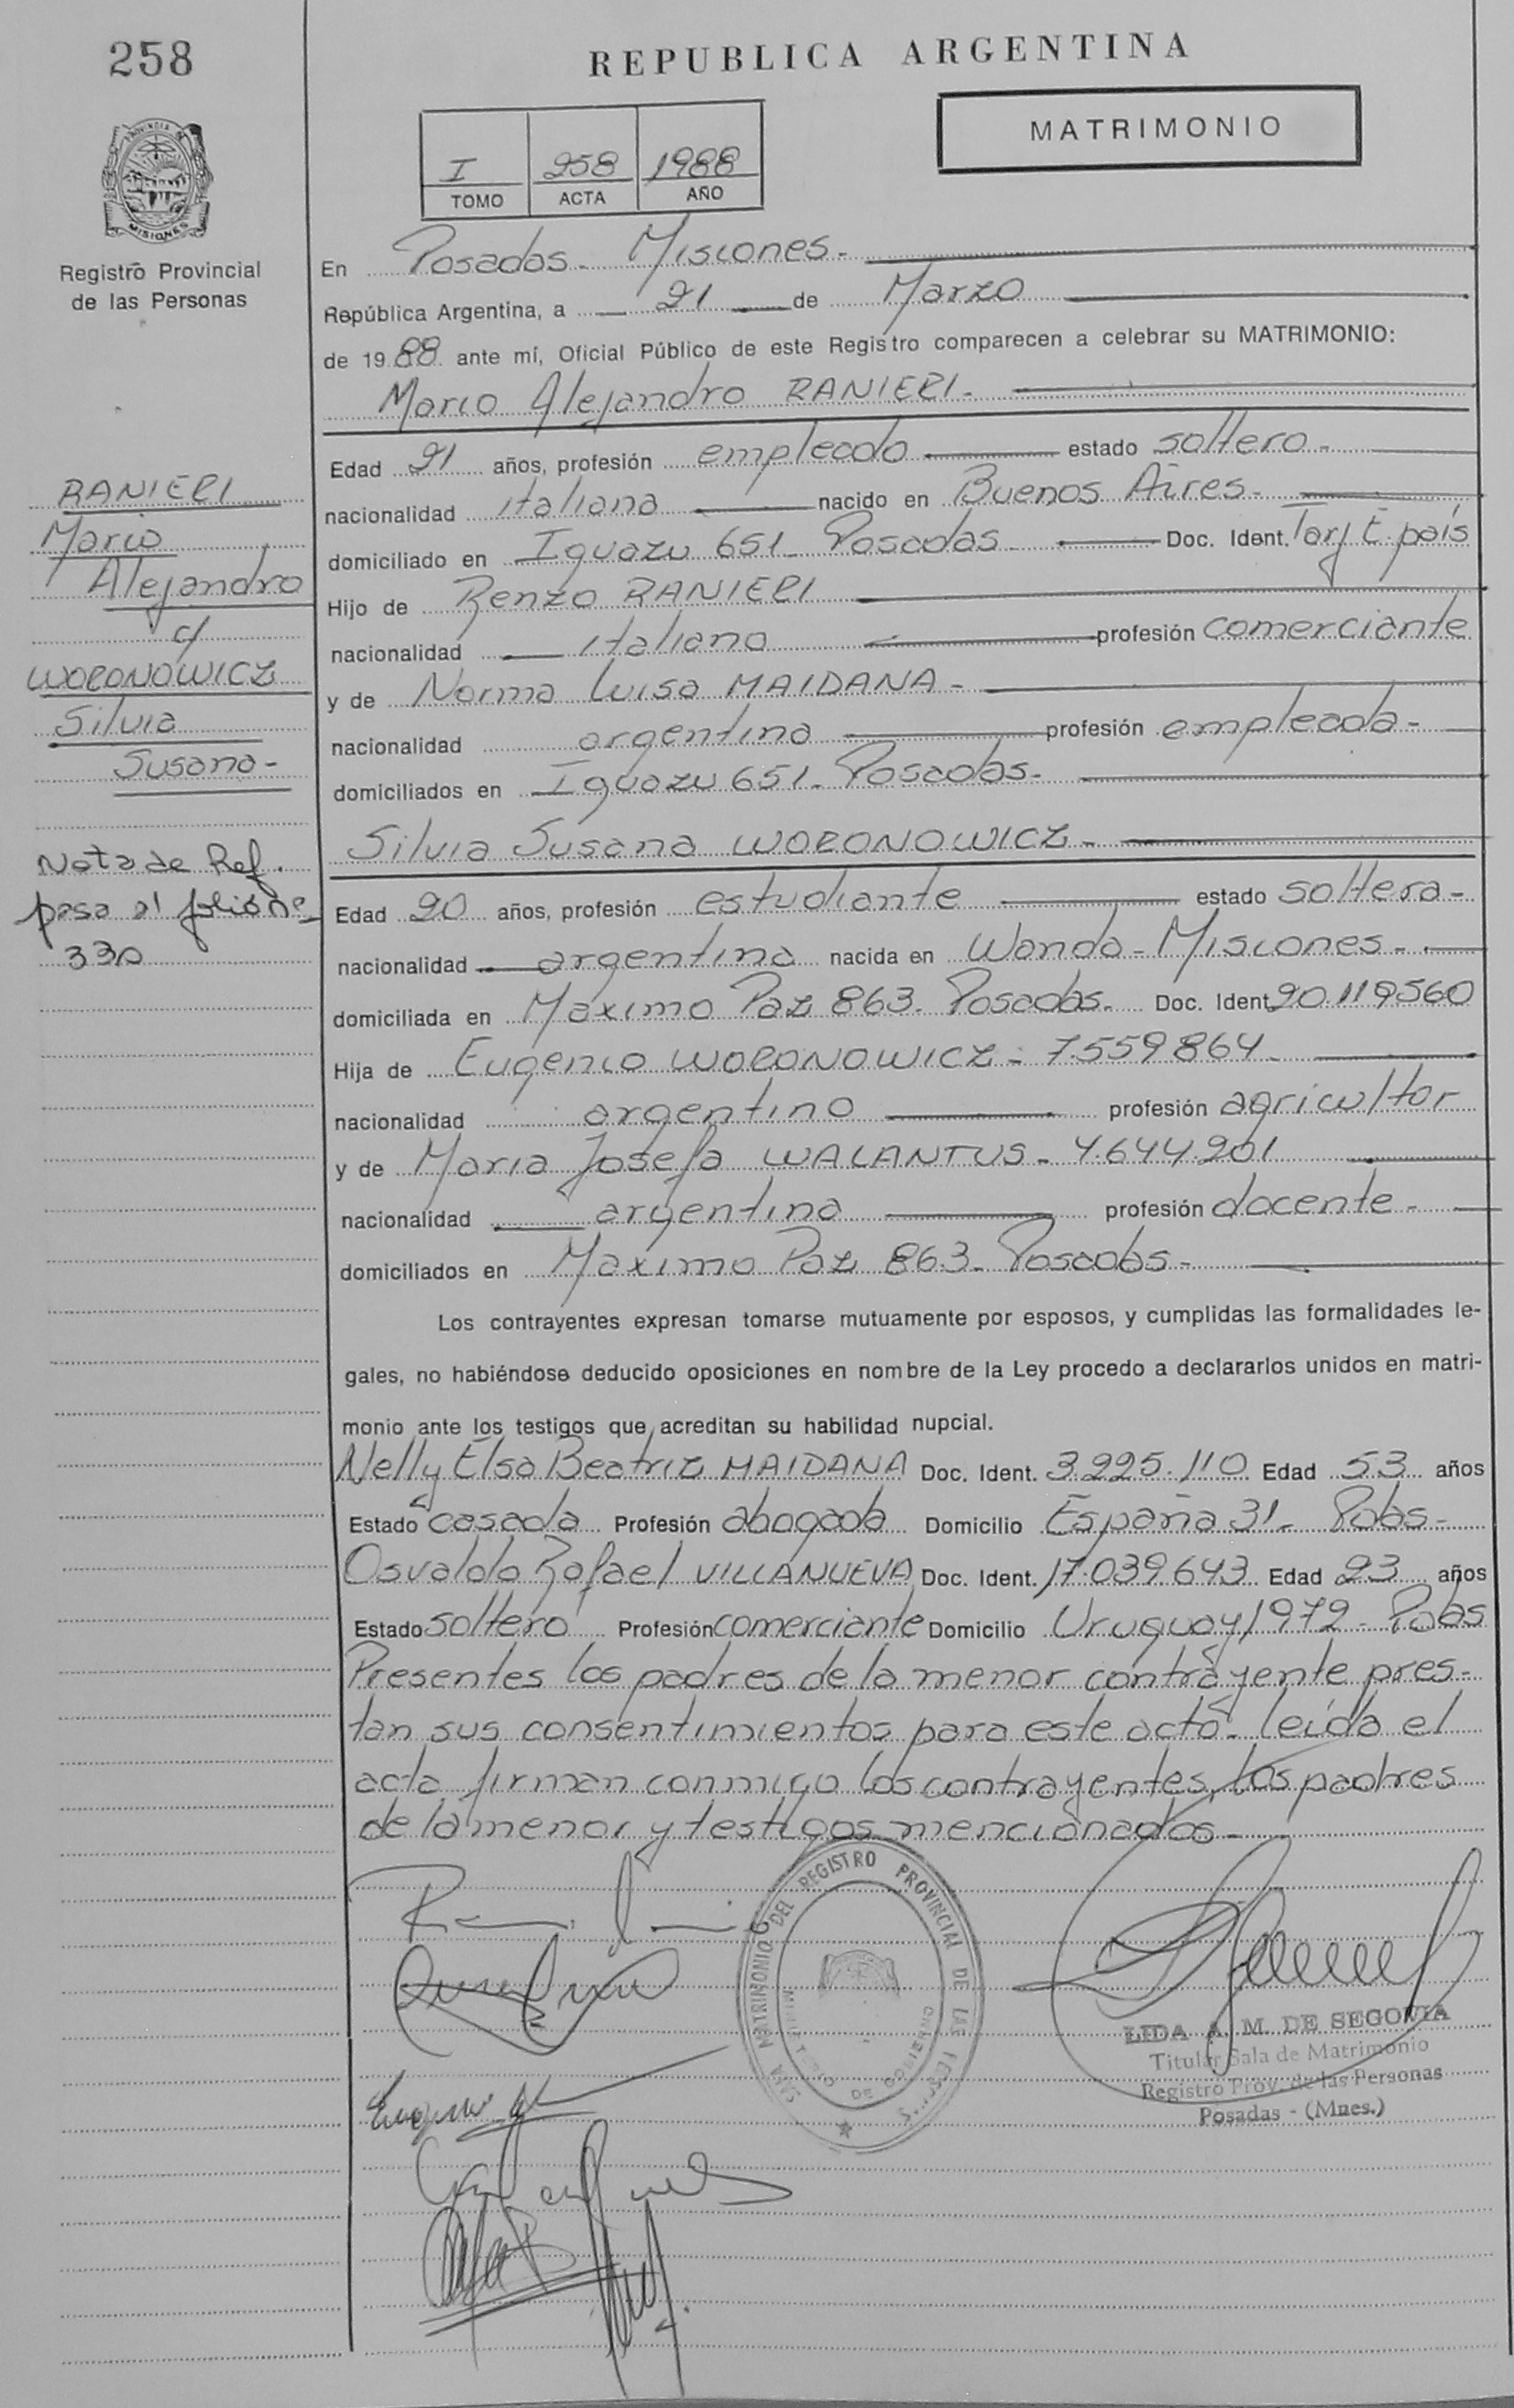 258
REPUBLICA ARGENTINA
MATRIMONIO
I 258 1988
TOMO ACTA AÑO
PROVINCIA DE
MISIONES
Registro Provincial
de las Personas
En Posadas - Misiones -
República Argentina, a 21 de Marzo
de 1988 ante mí, Oficial Público de este Registro comparecen a celebrar su MATRIMONIO:
Mario Alejandro RANIERI -
Edad 21 años, profesión empleado estado soltero -
nacionalidad italiana nacido en Buenos Aires -
domiciliado en Iguazu 651 - Posadas - Doc. Ident. Tarj E. país
Hijo de Renzo RANIERI
nacionalidad italiano profesión comerciante
y de Norma Luisa MAIDANA -
nacionalidad argentina profesión empleada -
domiciliados en Iguazu 651 - Posadas -
Silvia Susana WORONOWICZ -
Edad 20 años, profesión estudiante estado soltera -
nacionalidad argentina nacida en Wanda - Misiones -
domiciliada en Maximo Paz 863 - Posadas - Doc. Ident. 20.119.560
Hija de Eugenio WORONOWICZ - 7.559.864 -
nacionalidad argentino profesión agricultor
y de Maria Josefa WALANTUS - 4.644.201
nacionalidad argentina profesión docente -
domiciliados en Maximo Paz 863 - Posadas -
Los contrayentes expresan tomarse mutuamente por esposos, y cumplidas las formalidades le-
gales, no habiéndose deducido oposiciones en nombre de la Ley procedo a declararlos unidos en matri-
monio ante los testigos que acreditan su habilidad nupcial.
Nelly Elsa Beatriz MAIDANA Doc. Ident. 3.225.110 Edad 53 años
Estado casada Profesión abogada Domicilio España 31 - Pdas -
Osvaldo Rafael VILLANUEVA Doc. Ident. 17.039.643 Edad 23 años
Estado soltero Profesión comerciante Domicilio Uruguay 1972 - Pdas
Presentes los padres de la menor contrayente pres-
tan sus consentimientos para este acto - leída el
acta firman conmigo los contrayentes, los padres
de la menor y testigos mencionados -
RANIERI
Mario
Alejandro
c/
WORONOWICZ
Silvia
Susana -
Nota de Ref.
pasa al folio nº
330
SALA MATRIMONIO DEL REGISTRO PROVINCIAL DE LAS
MINISTERIO DE GOBIERNO
LIDA A. M. DE SEGOVIA
Titular Sala de Matrimonio
Registro Prov. de las Personas
Posadas - (Mnes.)